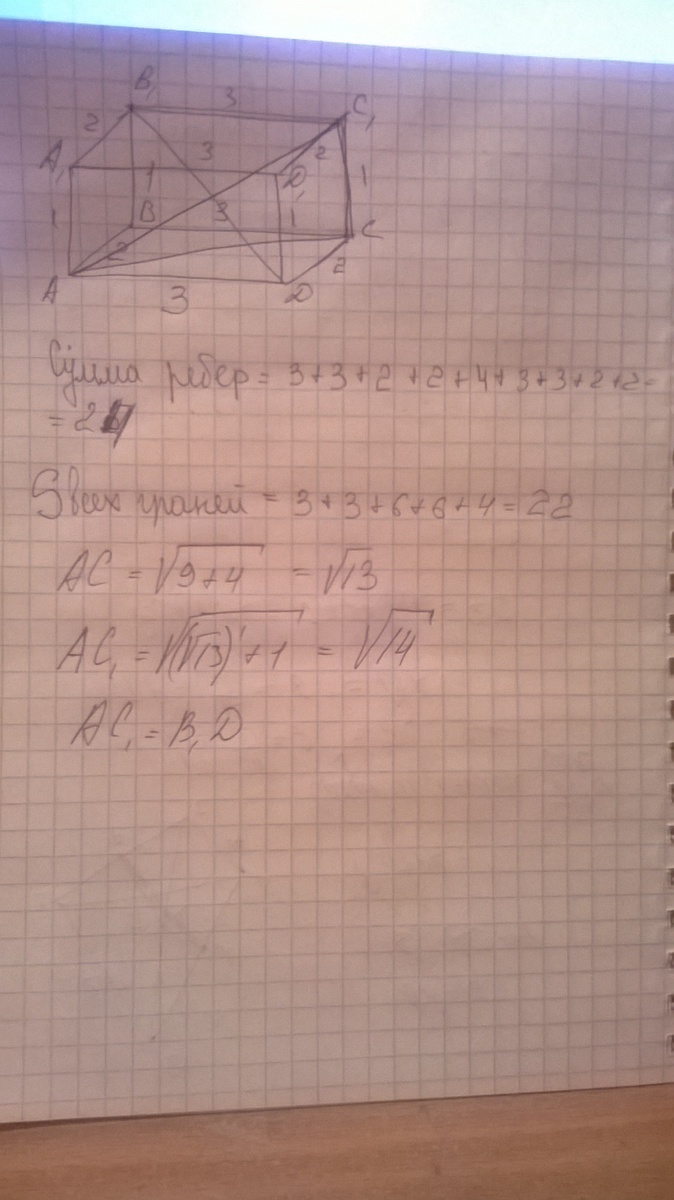 B₁ 3 C₁
2
A₁ 3 2
1 D₁ 1
1 B 3 1
2 C
A 3 D 2
Сумма ребер = 3+3+2+2+4+3+3+2+2=
= 24
Sвсех граней = 3+3+6+6+4=22
AC = √9+4 = √13
AC₁ = √(√13)²+1 = √14
AC₁ = B₁D